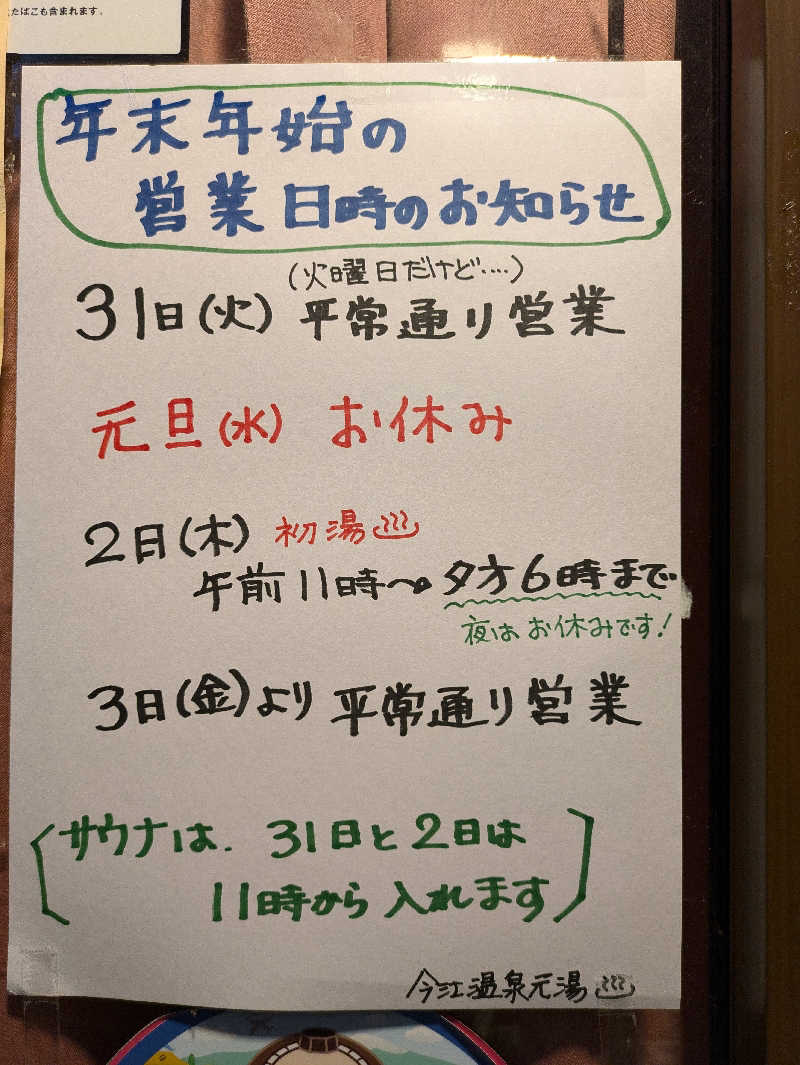 たばこも含まれます。
年末年始の
営業日時のお知らせ
(火曜日だけど....)
31日(火) 平常通り営業
元旦(水) お休み
2日(木) 初湯♨
午前11時〜夕方6時まで
夜はお休みです!
3日(金)より平常通り営業
サウナは. 31日と2日は
11時から入れます
今江温泉元湯♨